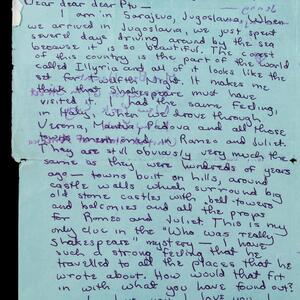 Dear dear dear Pru —
I am in Sarajevo, Jugoslavia. When
we arrived in Jugoslavia, we just spent
several days driving around by the sea
because it is so beautiful. The coast
of this country is the part of the world
called Illyria and all of it looks like the
set for Twelfth Night. It makes me
think that Shakespeare must have
visited it. I had the same feeling,
in Italy, when we drove through
Verona, Mantua, Padova and all those
towns mentioned in Romeo and Juliet.
They are still obviously very much the
same as they were hundreds of years
ago — towns built on hills, around
castle walls which surround big
old stone castles with bell towers
and balconies and all the props
for Romeo and Juliet. This is my
only clue in the "Who was really
Shakespeare" mystery — I have
such a strong feeling that he
travelled to all the places that he
wrote about. How would that fit
in with what you have found out?